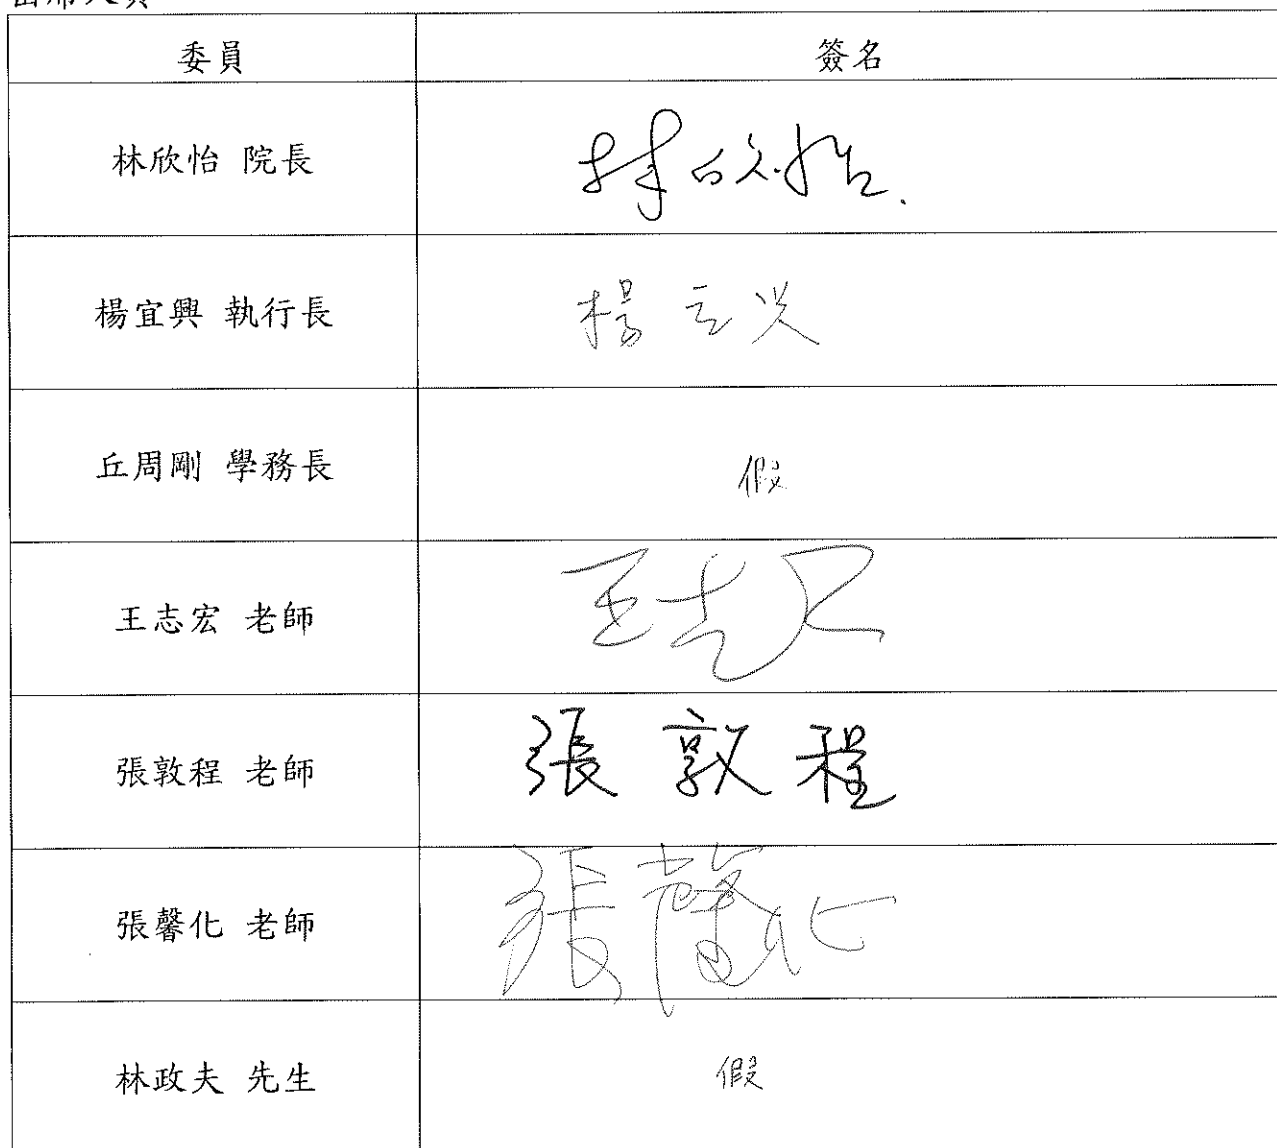 出席人員
委員 簽名
林欣怡 院長 林欣怡
楊宜興 執行長 楊宜興
丘周剛 學務長 假
王志宏 老師 王志宏
張敦程 老師 張敦程
張馨化 老師 張馨化
林政夫 先生 假